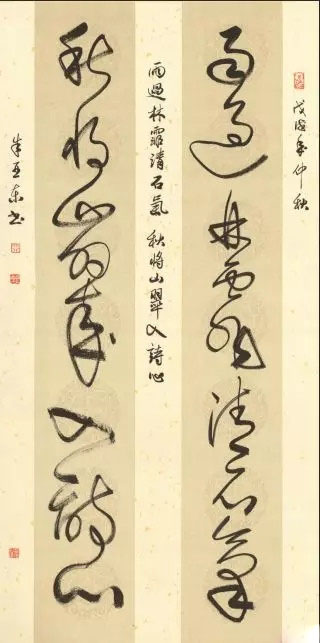 戊戌年仲秋
雨過林霏清石氣
雨過林霏清石氣 秋將山翠入詩心
秋將山翠入詩心
朱東书